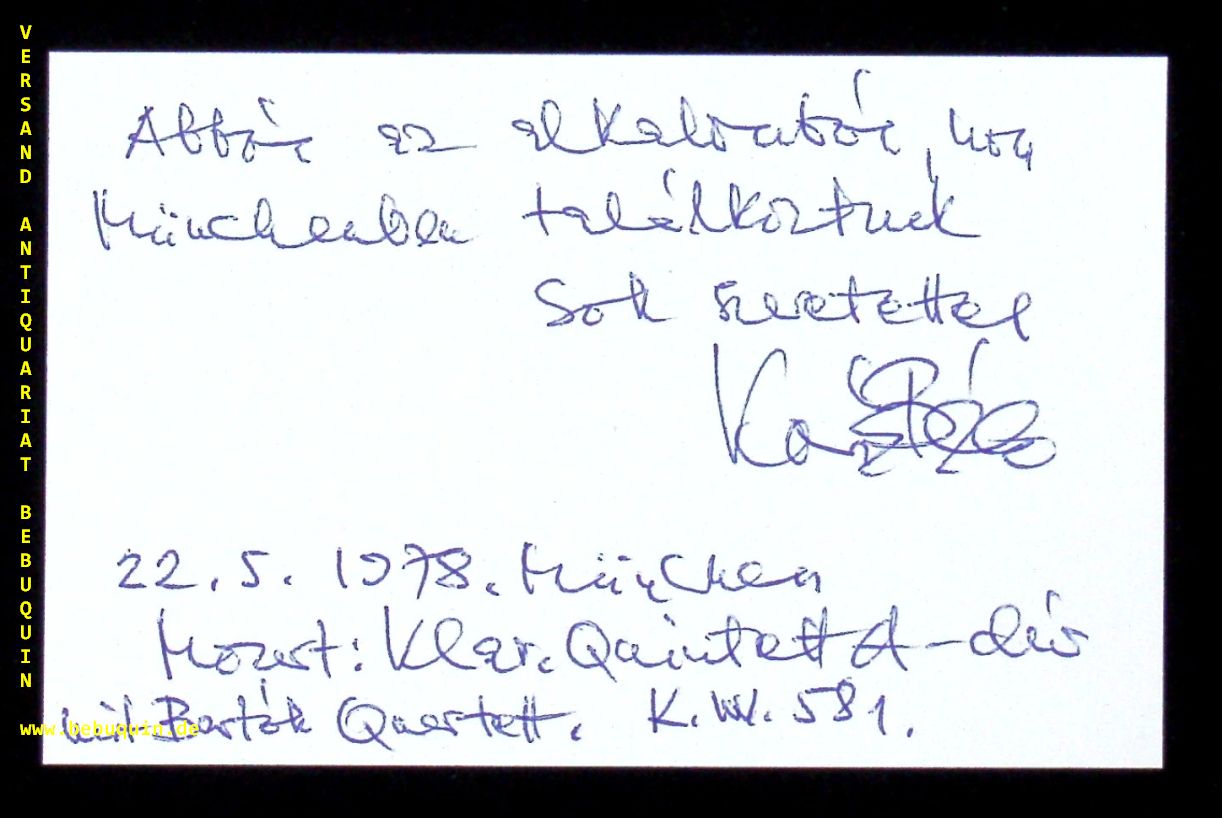 VERSAND ANTIQUARIAT BEBUQUIN
Abból az alkalomból, hogy
Münchenben találkoztunk
Sok szeretettel
Kovács Béla
22.5.1978. München
Mozart: Klar. Quintett A-dúr
mit Bartók Quartett. K.W. 581.
www.bebuquin.de